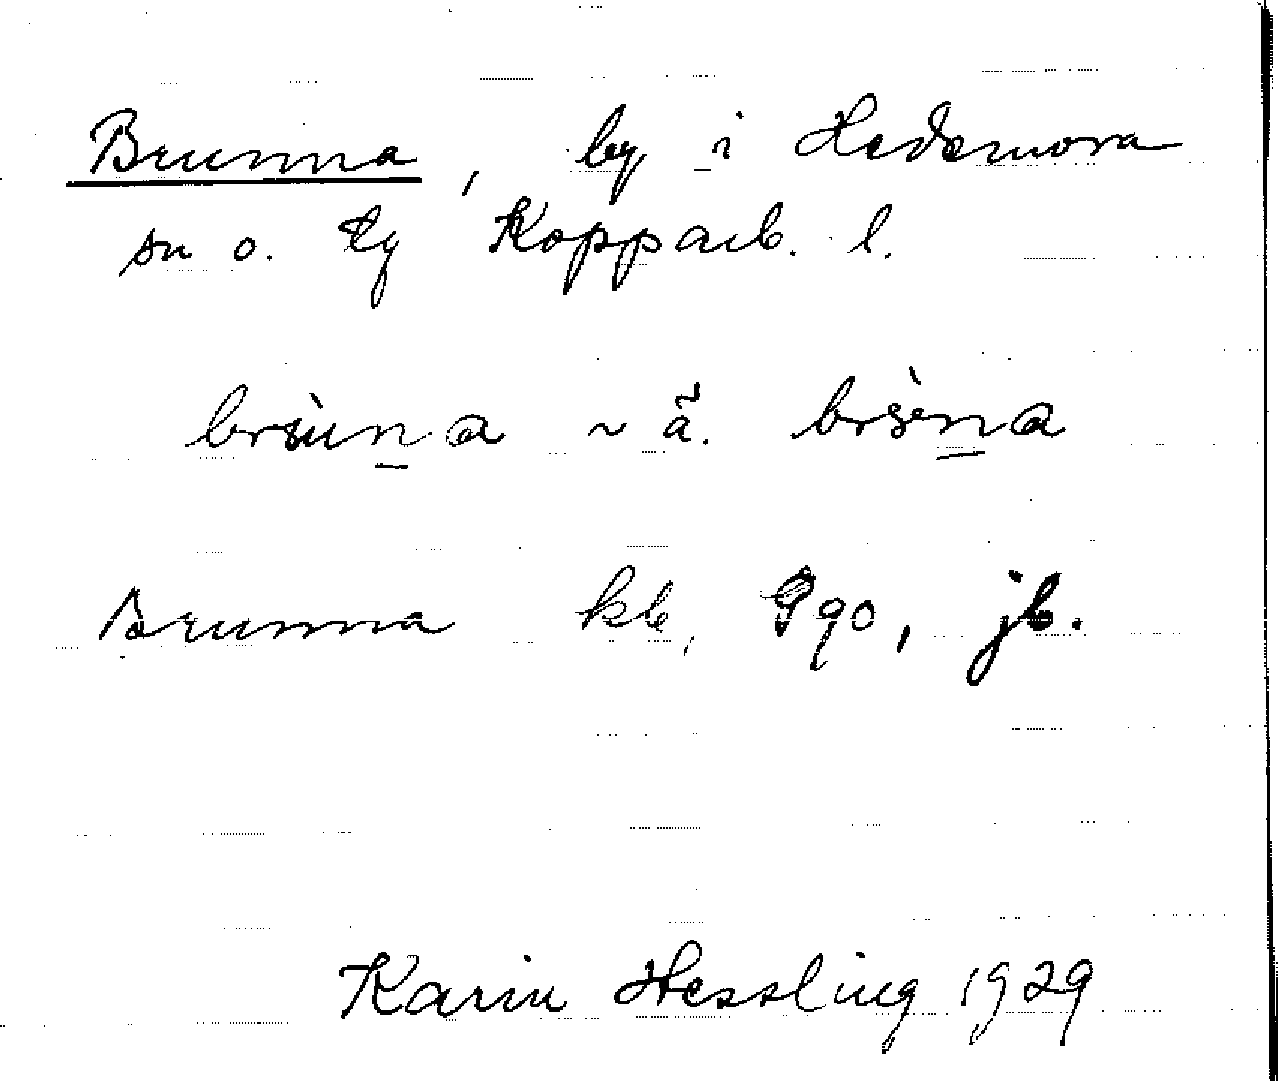 Brunna, by i Hedemora
sn o. tg Kopparb. l.
brùn̲a ~ ä. brèn̲a
Brunna kb, Gqo, jb.
Karin Hessling 1929